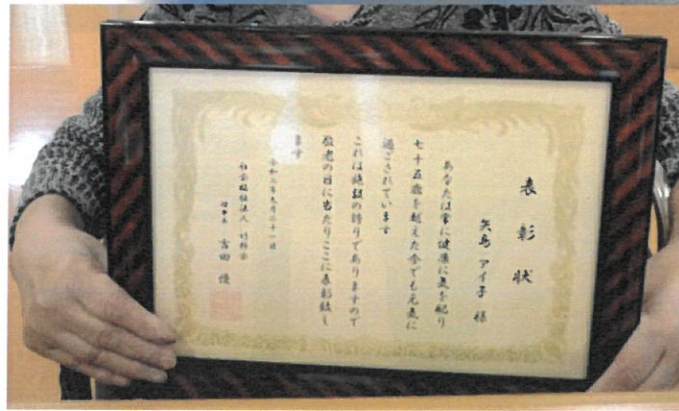 表彰状
矢島 アイ子 様
あなたは常に健康に気を配り
七十五歳を越えた今でも元気に
過ごされています
これは施設の誇りでありますので
敬老の日に当たりここに表彰致し
ます
令和二年九月二十一日
社会福祉法人
理事長 吉田 優